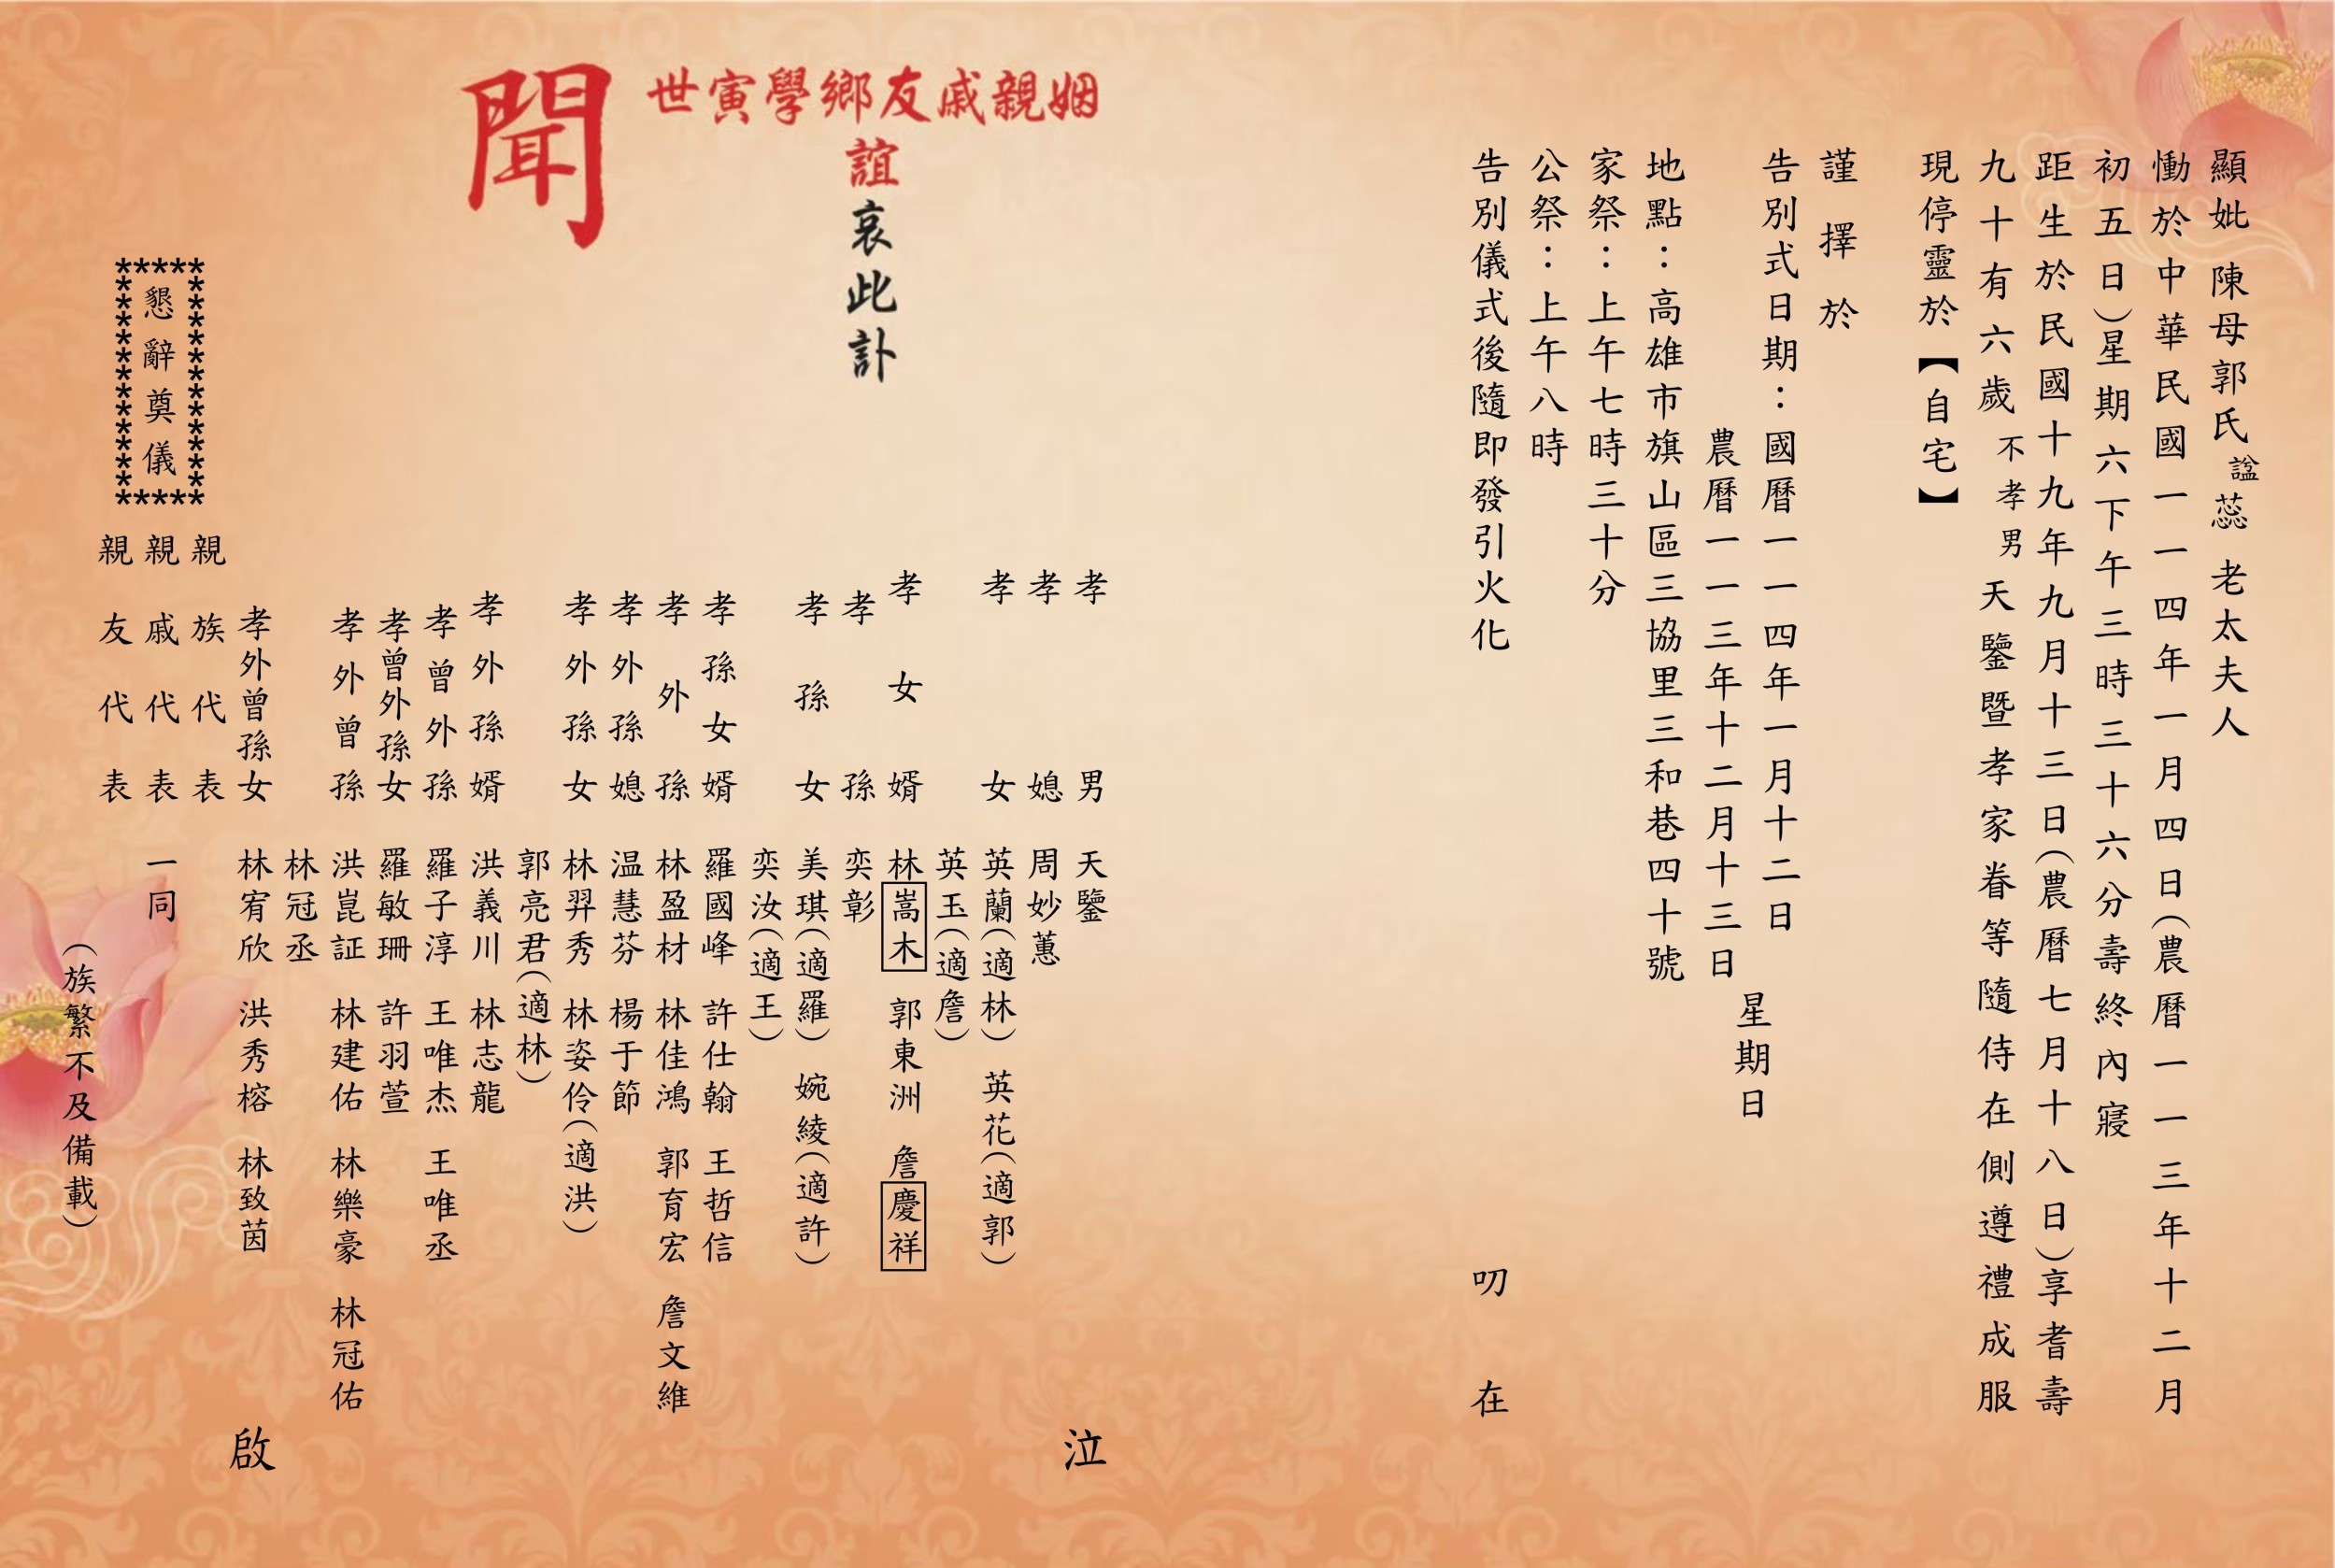 顯妣 陳母郭氏諡蕊 老太夫人
慟於中華民國一一四年一月四日(農曆一一三年十二月
初五日)星期六下午三時三十六分壽終內寢
距生於民國十九年九月十三日(農曆七月十八日)享耆壽
九十有六歲 不孝男 天鑒暨孝家眷等隨侍在側遵禮成服
現停靈於【自宅】
謹擇於
告別式日期：國曆一一四年一月十二日
農曆一一三年十二月十三日
星期日
地點：高雄市旗山區三協里三和巷四十號
家祭：上午七時三十分
公祭：上午八時
告別儀式後隨即發引火化
叨在
姻親戚友鄉學寅世
誼哀此訃
聞
孝男 天鑒
孝媳 周妙蕙
孝女 英蘭(適林) 英花(適郭)
英玉(適詹)
孝女婿 林嵩木 郭東洲 詹慶祥
孝孫 奕彰
孝孫女 美琪(適羅) 婉綾(適許)
奕汝(適王)
孝孫女婿 羅國峰 許仕翰 王哲信
孝外孫 林盈材 林佳鴻 郭育宏 詹文維
孝外孫媳 温慧芬 楊于節
孝外孫女 林羿秀 林姿伶(適洪)
郭亮君(適林)
孝外孫婿 洪義川 林志龍
孝曾外孫 羅子淳 王唯杰 王唯丞
孝曾外孫女 羅敏珊 許羽萱
孝外曾孫 洪崑証 林建佑 林樂豪 林冠佑
林冠丞
孝外曾孫女 林宥欣 洪秀榕 林致茵
泣
啟
親族代表
親戚代表 一同
親友代表
(族繁不及備載)
懇辭奠儀